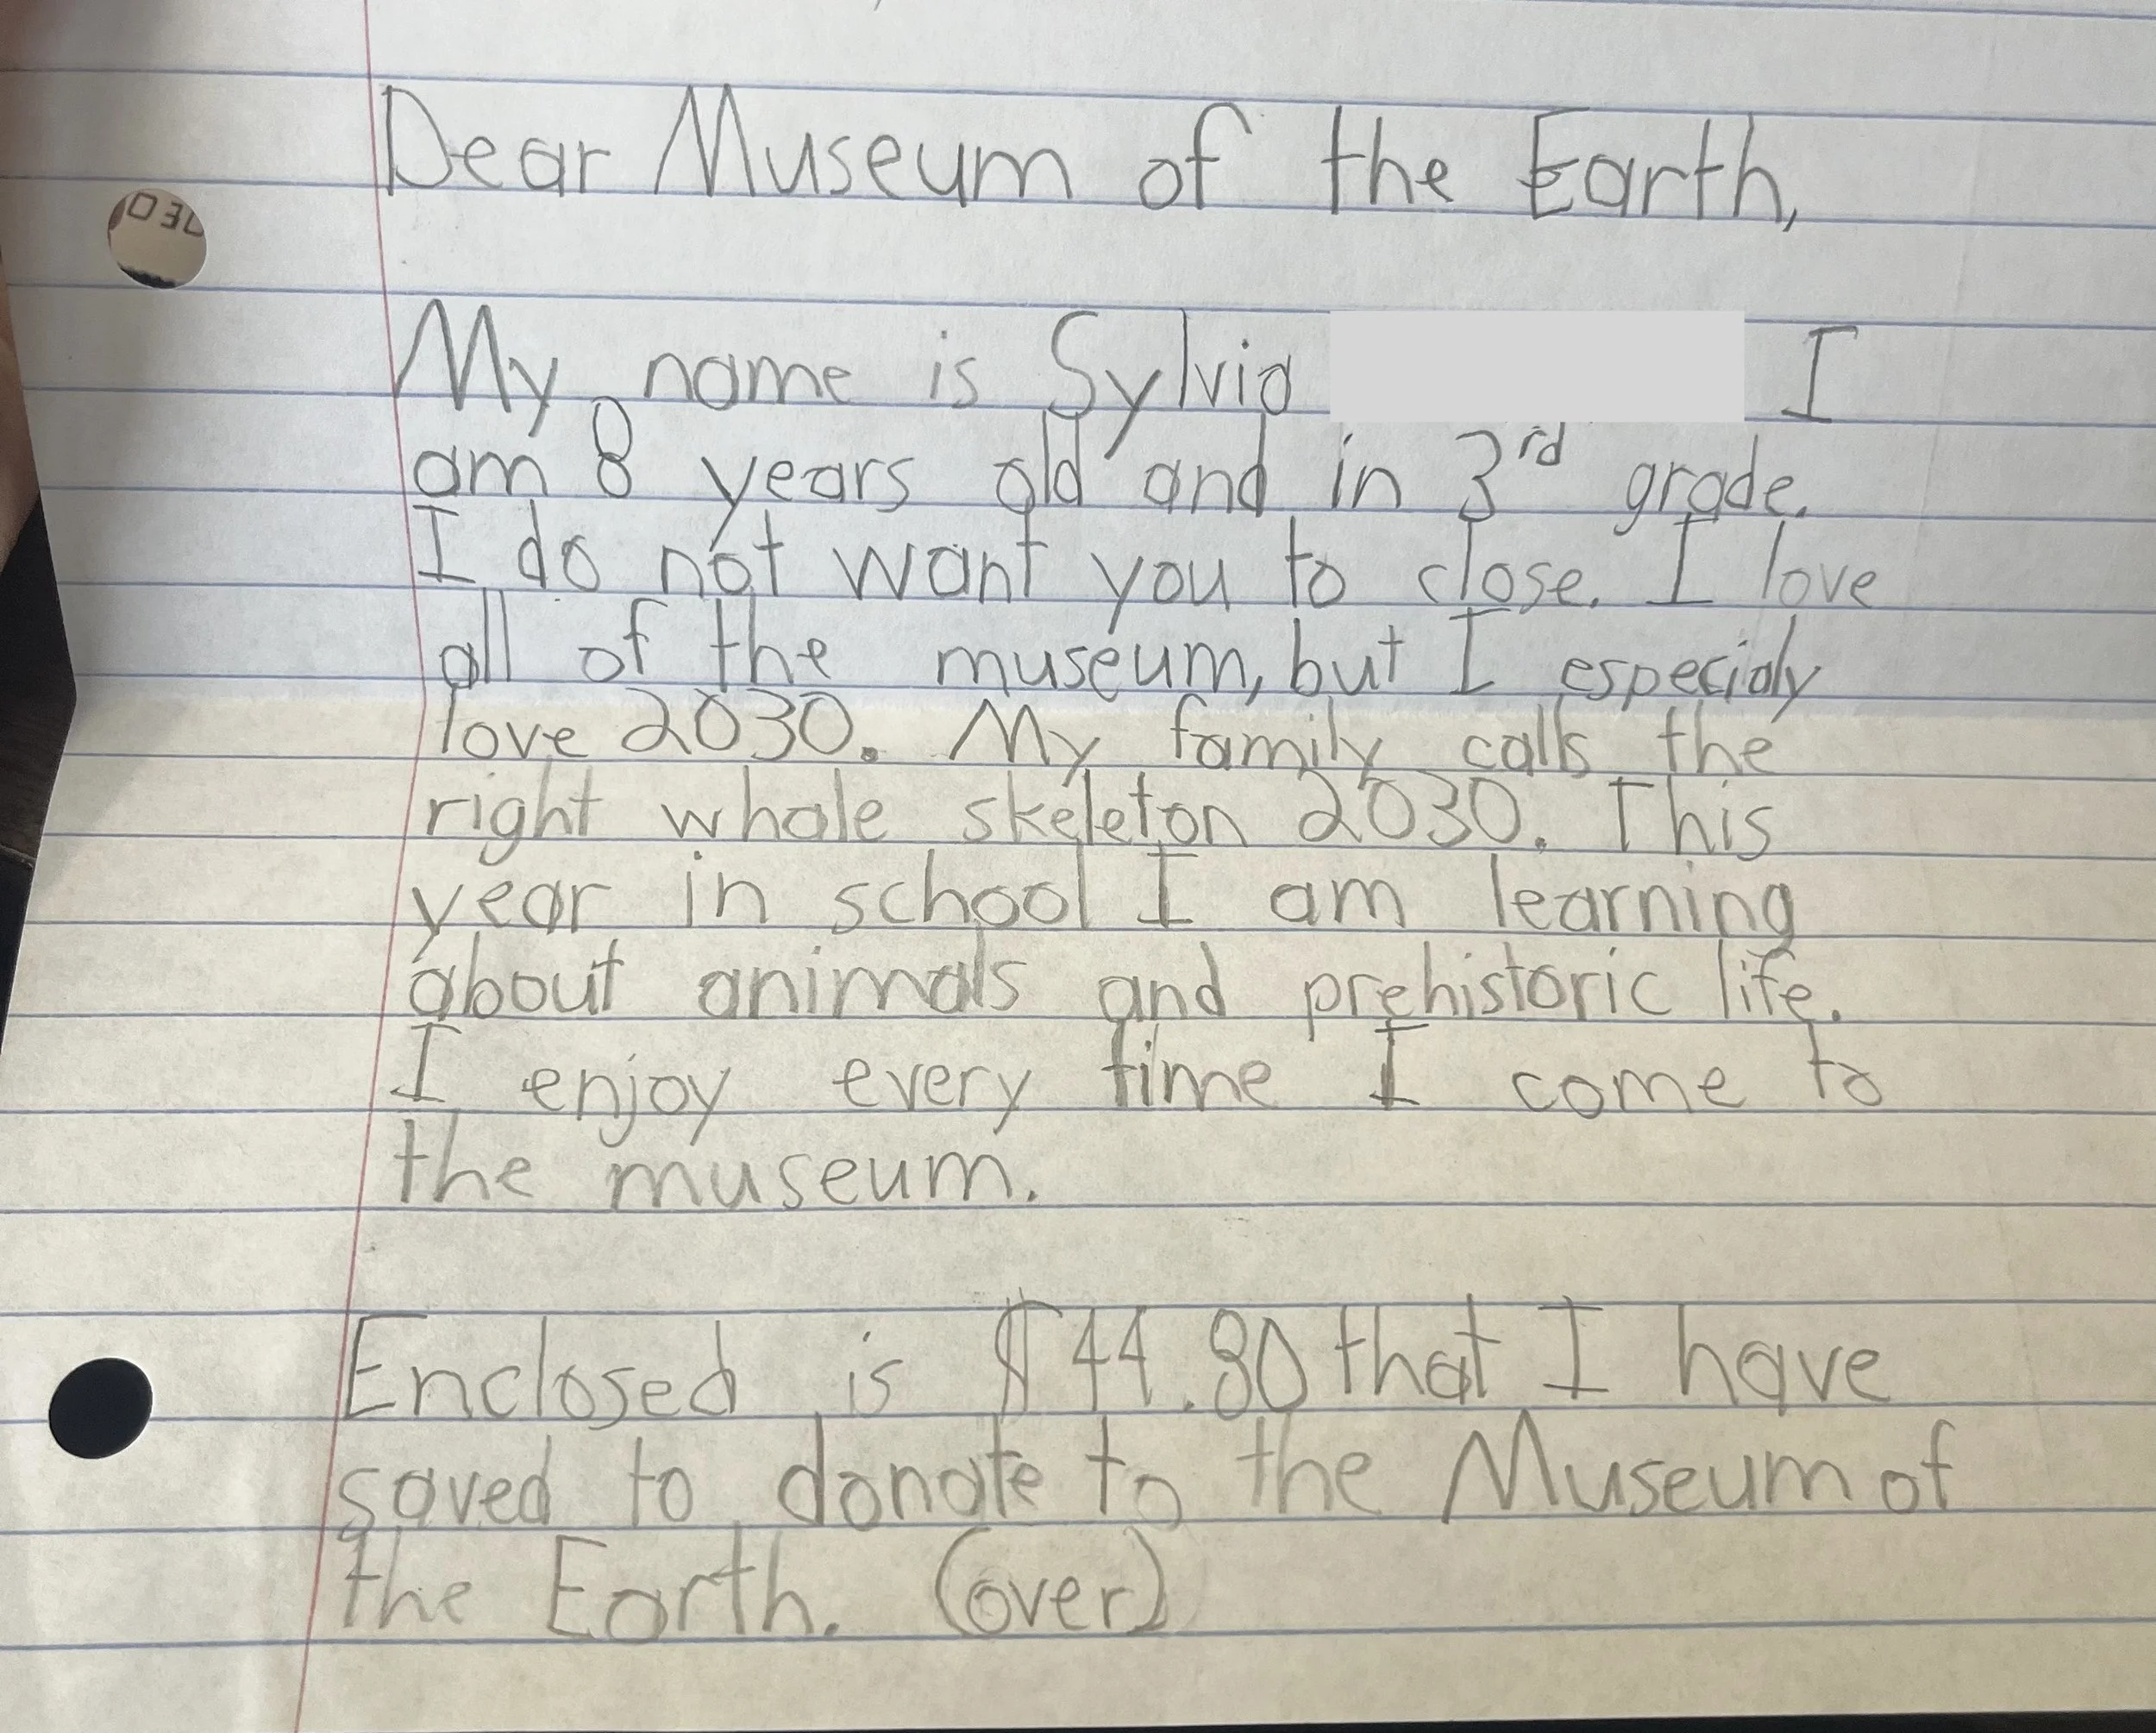 Dear Museum of the Earth,
My name is Sylvia I
am 8 years old and in 3rd grade.
I do not want you to close. I love
all of the museum, but I especialy
love 2030. My family calls the
right whale skeleton 2030. This
year in school I am learning
about animals and prehistoric life.
I enjoy every time I come to
the museum.
Enclosed is $44.80 that I have
saved to donate to the Museum of
the Earth. (over)